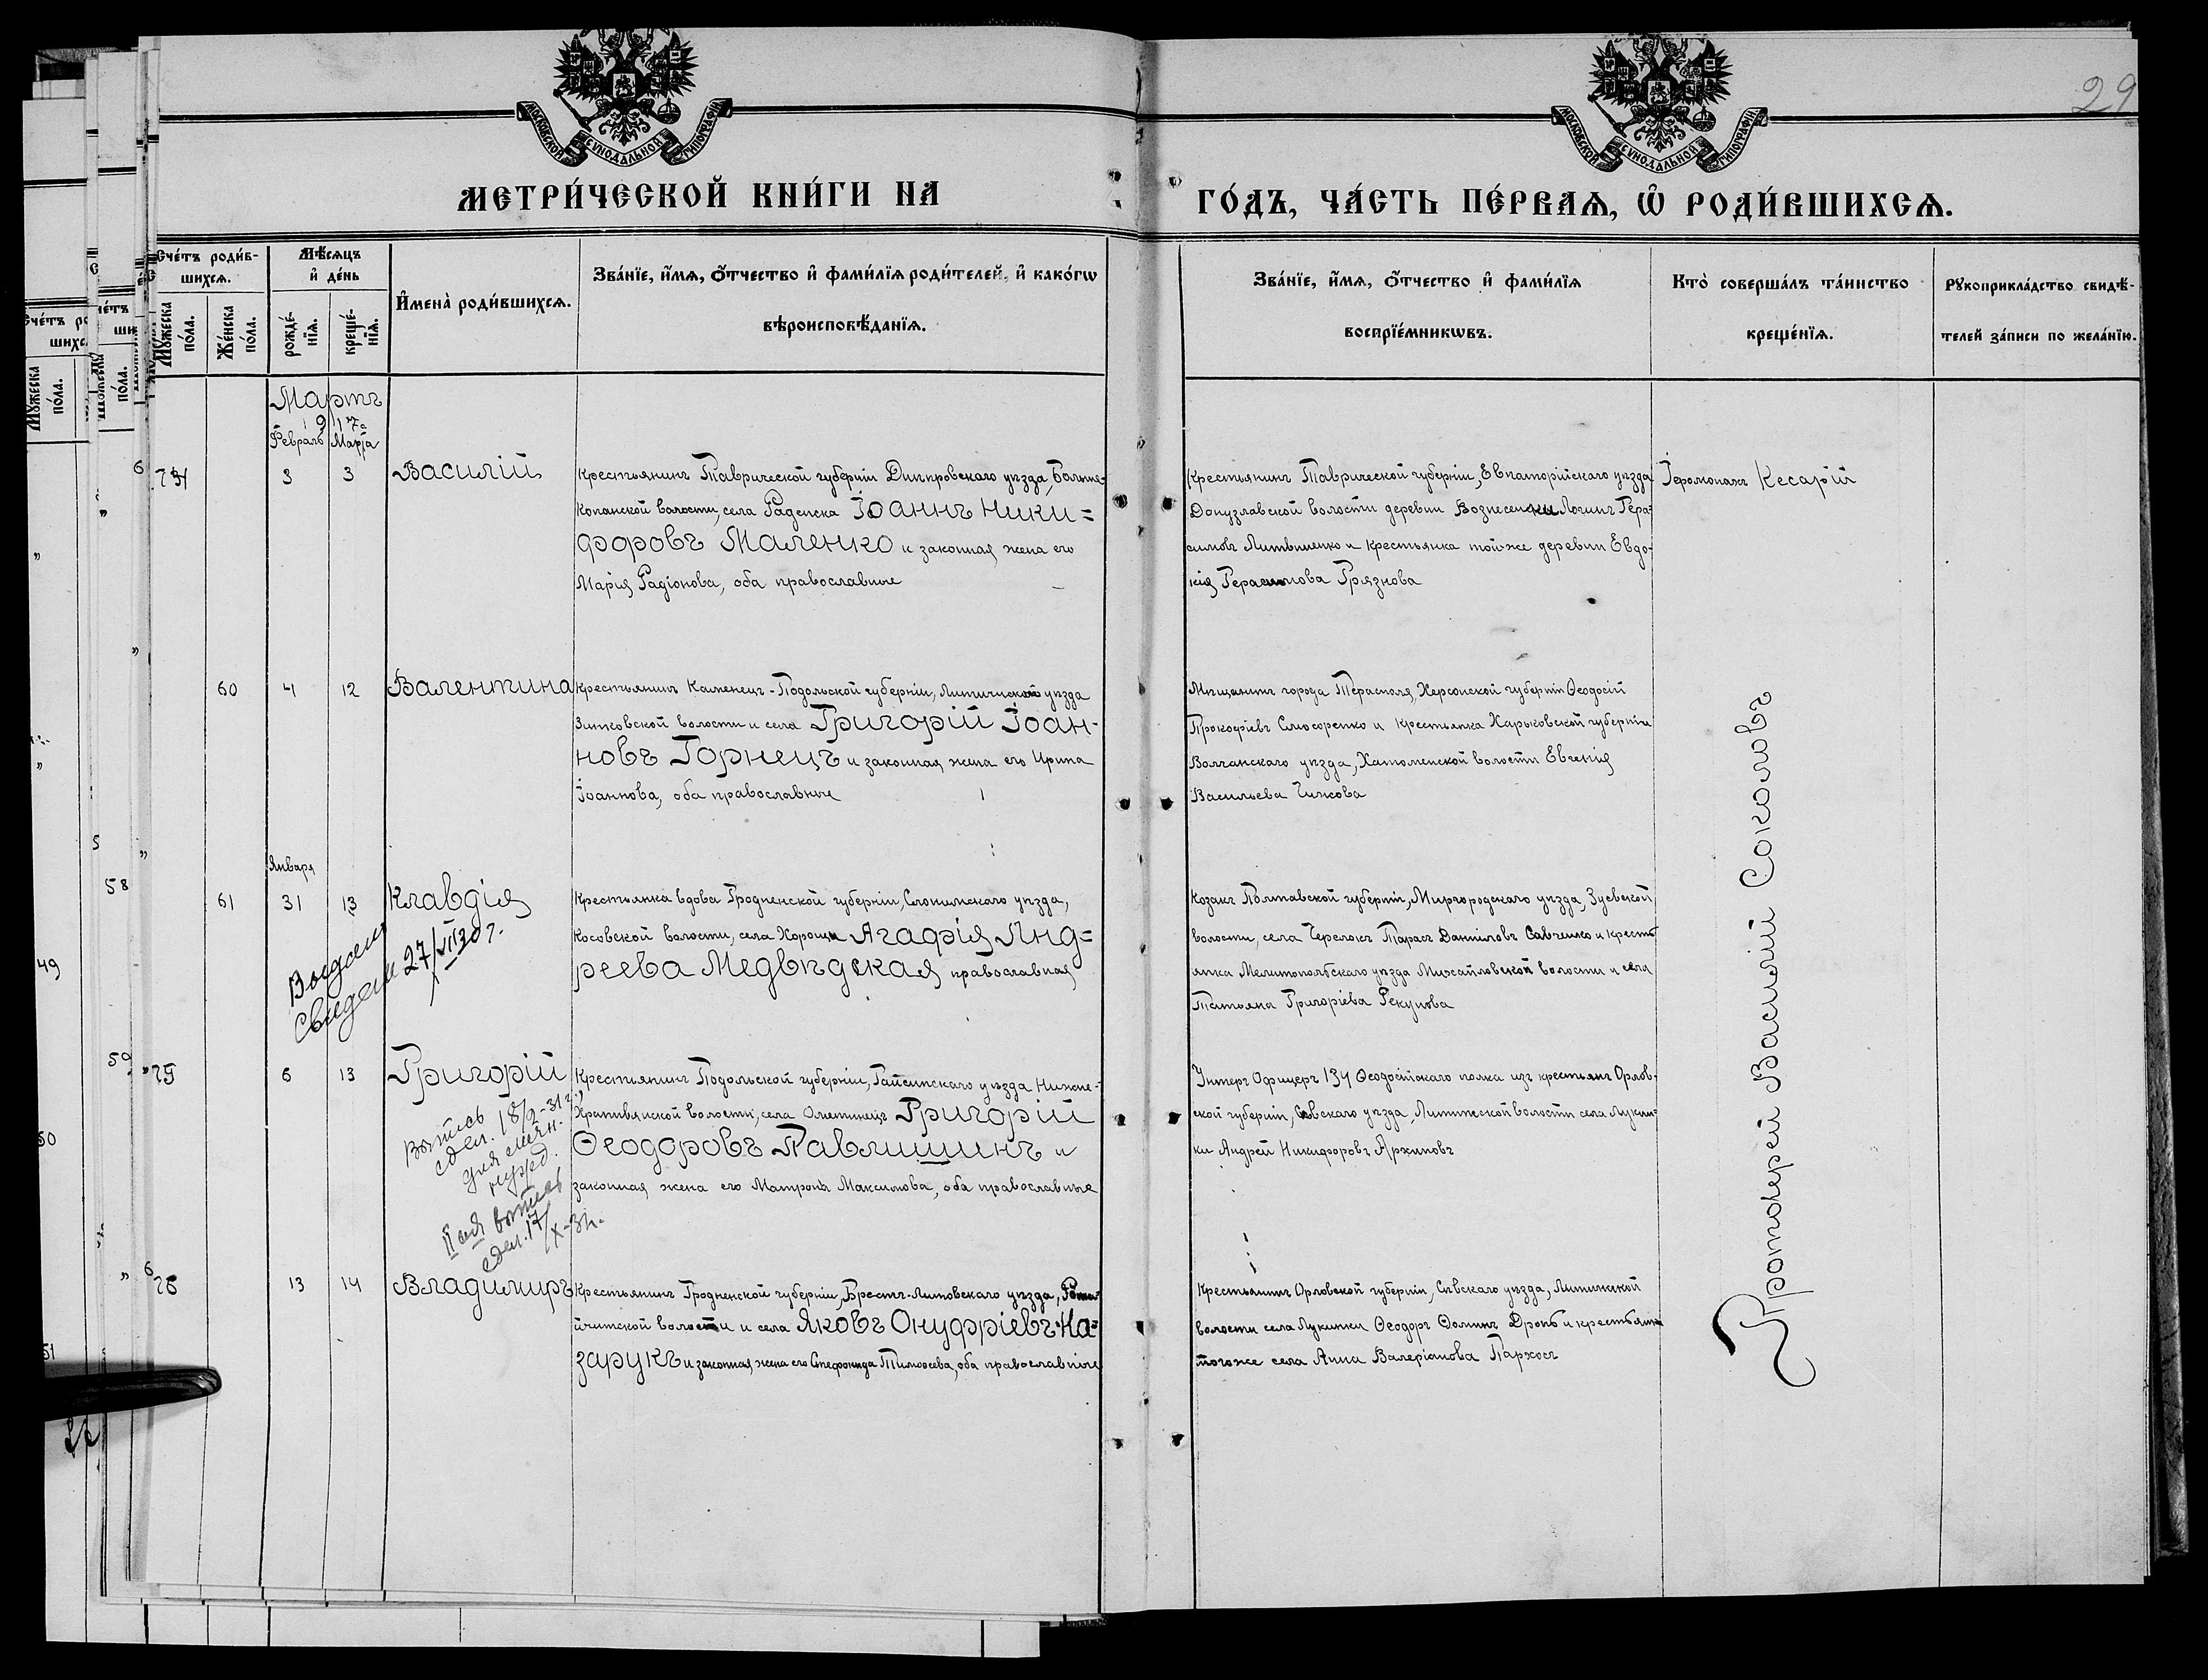 29
МОСКОВСКОЙ СѴНОДАЛЬНОЙ ТИПОГРАФІИ
МОСКОВСКОЙ СѴНОДАЛЬНОЙ ТИПОГРАФІИ
МЕТРИ́ЧЕСКОЙ КНИ́ГИ НА
ГО́ДЪ, ЧА́СТЬ ПЕ́РВАѦ, Ѽ РОДИ́ВШИХСѦ.
Сче́тъ роди́в-
шихсѧ.
Мѣ́сѧцъ
и҆ де́нь
И҆мена̀ роди́вшихсѧ.
Зва́нїе, и҆́мѧ, ѻ҆́тчество и҆ фами́лїѧ роди́телей, и҆ како́гѡ
вѣроисповѣ́данїѧ.
Мꙋ́жеска
по́ла.
Же́нска
по́ла.
рожде́-
нїѧ.
креще́-
нїѧ.
Зва́нїе, и҆́мѧ, ѻ҆́тчество и҆ фами́лїѧ
воспрїе́мникѡвъ.
Кто̀ соверша́лъ та́инство
креще́нїѧ.
Рꙋкоприкла́дство свидѣ́-
телей за́писи по жела́нїю.
Мартъ
1917 г.
Февраль Марта
74 3 3 Василій
Крестьянинъ Таврической губерніи Днѣпровскаго уѣзда, Больше-
Копанской волости, села Раденска Іоаннъ Ники=
форовъ Маленко и законная жена его
Марія Радіонова, оба православные
Крестьянинъ Таврической губерніи, Евпаторійскаго уѣзда
Донузлавской волости деревни Вознесенки Логинъ Гера-
симовъ Литвиненко и крестьянка той-же деревни Евдо-
кія Герасимова Грязнова
Іеромонахъ Кесарій
60 4 12 Валентина
Крестьянинъ Каменецъ-Подольской губерніи, Литинскаго уѣзда
Зиньковской волости и села Григорій Іоан-
новъ Горнецъ и законная жена его Ирина
Іоаннова, оба православные
Мѣщанинъ города Терасполя, Херсонской губерніи Ѳеодосій
Прокофіевъ Слюсоренко и Крестьянка Харьковской губерніи
Волчанскаго уѣзда, Хатоменской волости Евгенія
Васильева Чижова
Января
61 31 13 Клавдія
Крестьянка вдова Гродненской губерніи, Слонимскаго уѣзда,
Косовской волости, села Хороща Агафія Анд=
реева Медвѣдская православная
Козакъ Полтавской губерніи, Миргородскаго уѣзда, Зуевской
волости, села Черелокъ Тарасъ Даниловъ Савченко и кресть-
янка Мелитопольскаго уѣзда Михайловской волости и села
Татьяна Григоріева Рекунова
Выдано
Свидет 27/VII 30 г.
75 6 13 Григорій
Крестьянинъ Подольской губерніи, Гайсинскаго уѣзда Нижне-
Крапивянской волости, села Ометинецъ Григорій
Ѳеодоровъ Павлишинъ и
законная жена его Матрона Максимова, оба православные
Унтеръ Офицеръ 134 Ѳеодосійскаго полка изъ крестьянъ Орлов-
ской губерніи, Сѣвскаго уѣзда, Литижской волости села Лукин-
ки Андрей Никифоровъ Архиповъ
Выпись
сдел. 18/
-31 г.
для
II ая выпись
сдел. 17/X-31 г.
76 13 14 Владимиръ
Крестьянинъ Гродненской губерніи, Брестъ-Литовскаго уѣзда,
волости и села Яковъ Онуфріевъ На=
зарукъ и законная жена его Стефонида Тимоѳеева, оба православные
Крестьянинъ Орловской губерніи, Сѣвскаго уѣзда, Литижской
волости села Лукинки Ѳеодоръ Ѳоминъ Дронъ и крестьянка
того-же села Анна Валеріанова Пархось
Протоіерей Василій Соколовъ
58
49
59
50
51